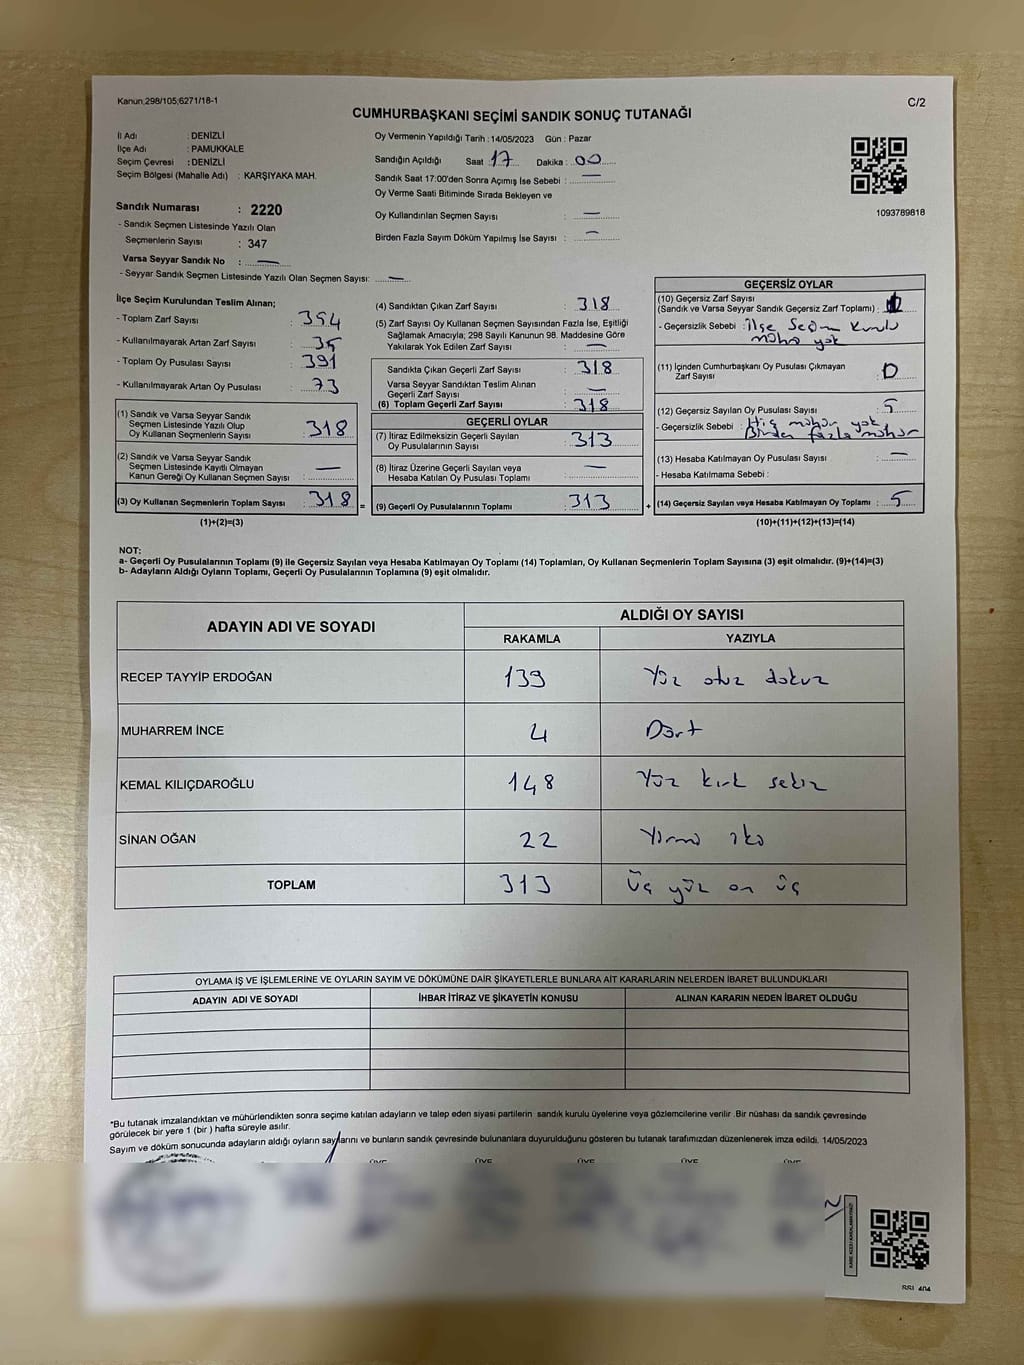 Kanun;298/105;6271/18-1
C/2
CUMHURBAŞKANI SEÇİMİ SANDIK SONUÇ TUTANAĞI
İl Adı : DENİZLİ
İlçe Adı : PAMUKKALE
Seçim Çevresi : DENİZLİ
Seçim Bölgesi (Mahalle Adı) : KARŞIYAKA MAH.
Oy Vermenin Yapıldığı Tarih : 14/05/2023 Gün : Pazar
Sandığın Açıldığı Saat 17 Dakika : 00
Sandık Saat 17:00'den Sonra Açımış İse Sebebi : —
Oy Verme Saati Bitiminde Sırada Bekleyen ve
Oy Kullandırılan Seçmen Sayısı : —
Birden Fazla Sayım Döküm Yapılmış İse Sayısı : —
1093789818
Sandık Numarası : 2220
- Sandık Seçmen Listesinde Yazılı Olan
Seçmenlerin Sayısı : 347
Varsa Seyyar Sandık No : —
- Seyyar Sandık Seçmen Listesinde Yazılı Olan Seçmen Sayısı: —
İlçe Seçim Kurulundan Teslim Alınan;
- Toplam Zarf Sayısı : 354
- Kullanılmayarak Artan Zarf Sayısı : 35
- Toplam Oy Pusulası Sayısı : 391
- Kullanılmayarak Artan Oy Pusulası : 73
(1) Sandık ve Varsa Seyyar Sandık
Seçmen Listesinde Yazılı Olup
Oy Kullanan Seçmenlerin Sayısı : 318
(2) Sandık ve Varsa Seyyar Sandık
Seçmen Listesinde Kayıtlı Olmayan
Kanun Gereği Oy Kullanan Seçmen Sayısı : —
(3) Oy Kullanan Seçmenlerin Toplam Sayısı : 318
(1)+(2)=(3)
(4) Sandıktan Çıkan Zarf Sayısı : 318
(5) Zarf Sayısı Oy Kullanan Seçmen Sayısından Fazla İse, Eşitliği
Sağlamak Amacıyla; 298 Sayılı Kanunun 98. Maddesine Göre
Yakılarak Yok Edilen Zarf Sayısı : —
Sandıkta Çıkan Geçerli Zarf Sayısı : 318
Varsa Seyyar Sandıktan Teslim Alınan
Geçerli Zarf Sayısı : —
(6) Toplam Geçerli Zarf Sayısı : 318
GEÇERLİ OYLAR
(7) İtiraz Edilmeksizin Geçerli Sayılan
Oy Pusulalarının Sayısı : 313
(8) İtiraz Üzerine Geçerli Sayılan veya
Hesaba Katılan Oy Pusulası Toplamı : —
= (9) Geçerli Oy Pusulalarının Toplamı : 313
GEÇERSİZ OYLAR
(10) Geçersiz Zarf Sayısı
(Sandık ve Varsa Seyyar Sandık Geçersiz Zarf Toplamı) :
- Geçersizlik Sebebi : ilçe Seçim Kurulu
mührü yok
(11) İçinden Cumhurbaşkanı Oy Pusulası Çıkmayan
Zarf Sayısı : 0
(12) Geçersiz Sayılan Oy Pusulası Sayısı : 5
- Geçersizlik Sebebi : Hiç mühür yok
Birden fazla mühür
(13) Hesaba Katılmayan Oy Pusulası Sayısı : —
- Hesaba Katılmama Sebebi :
+ (14) Geçersiz Sayılan veya Hesaba Katılmayan Oy Toplamı : 5
(10)+(11)+(12)+(13)=(14)
NOT:
a- Geçerli Oy Pusulalarının Toplamı (9) ile Geçersiz Sayılan veya Hesaba Katılmayan Oy Toplamı (14) Toplamları, Oy Kullanan Seçmenlerin Toplam Sayısına (3) eşit olmalıdır. (9)+(14)=(3)
b- Adayların Aldığı Oyların Toplamı, Geçerli Oy Pusulalarının Toplamına (9) eşit olmalıdır.
ADAYIN ADI VE SOYADI
ALDIĞI OY SAYISI
RAKAMLA YAZIYLA
RECEP TAYYİP ERDOĞAN 139 Yüz otuz dokuz
MUHARREM İNCE 4 Dört
KEMAL KILIÇDAROĞLU 148 Yüz kırk sekiz
SİNAN OĞAN 22 Yirmi iki
TOPLAM 313 Üç yüz on üç
OYLAMA İŞ VE İŞLEMLERİNE VE OYLARIN SAYIM VE DÖKÜMÜNE DAİR ŞİKAYETLERLE BUNLARA AİT KARARLARIN NELERDEN İBARET BULUNDUKLARI
ADAYIN ADI VE SOYADI İHBAR İTİRAZ VE ŞİKAYETİN KONUSU ALINAN KARARIN NEDEN İBARET OLDUĞU
*Bu tutanak imzalandıktan ve mühürlendikten sonra seçime katılan adayların ve talep eden siyasi partilerin sandık kurulu üyelerine veya gözlemcilerine verilir .Bir nüshası da sandık çevresinde
görülecek bir yere 1 (bir ) hafta süreyle asılır.
Sayım ve döküm sonucunda adayların aldığı oyların sayılarını ve bunların sandık çevresinde bulunanlara duyurulduğunu gösteren bu tutanak tarafımızdan düzenlenerek imza edildi. 14/05/2023
ÜYE ÜYE ÜYE ÜYE ÜYE